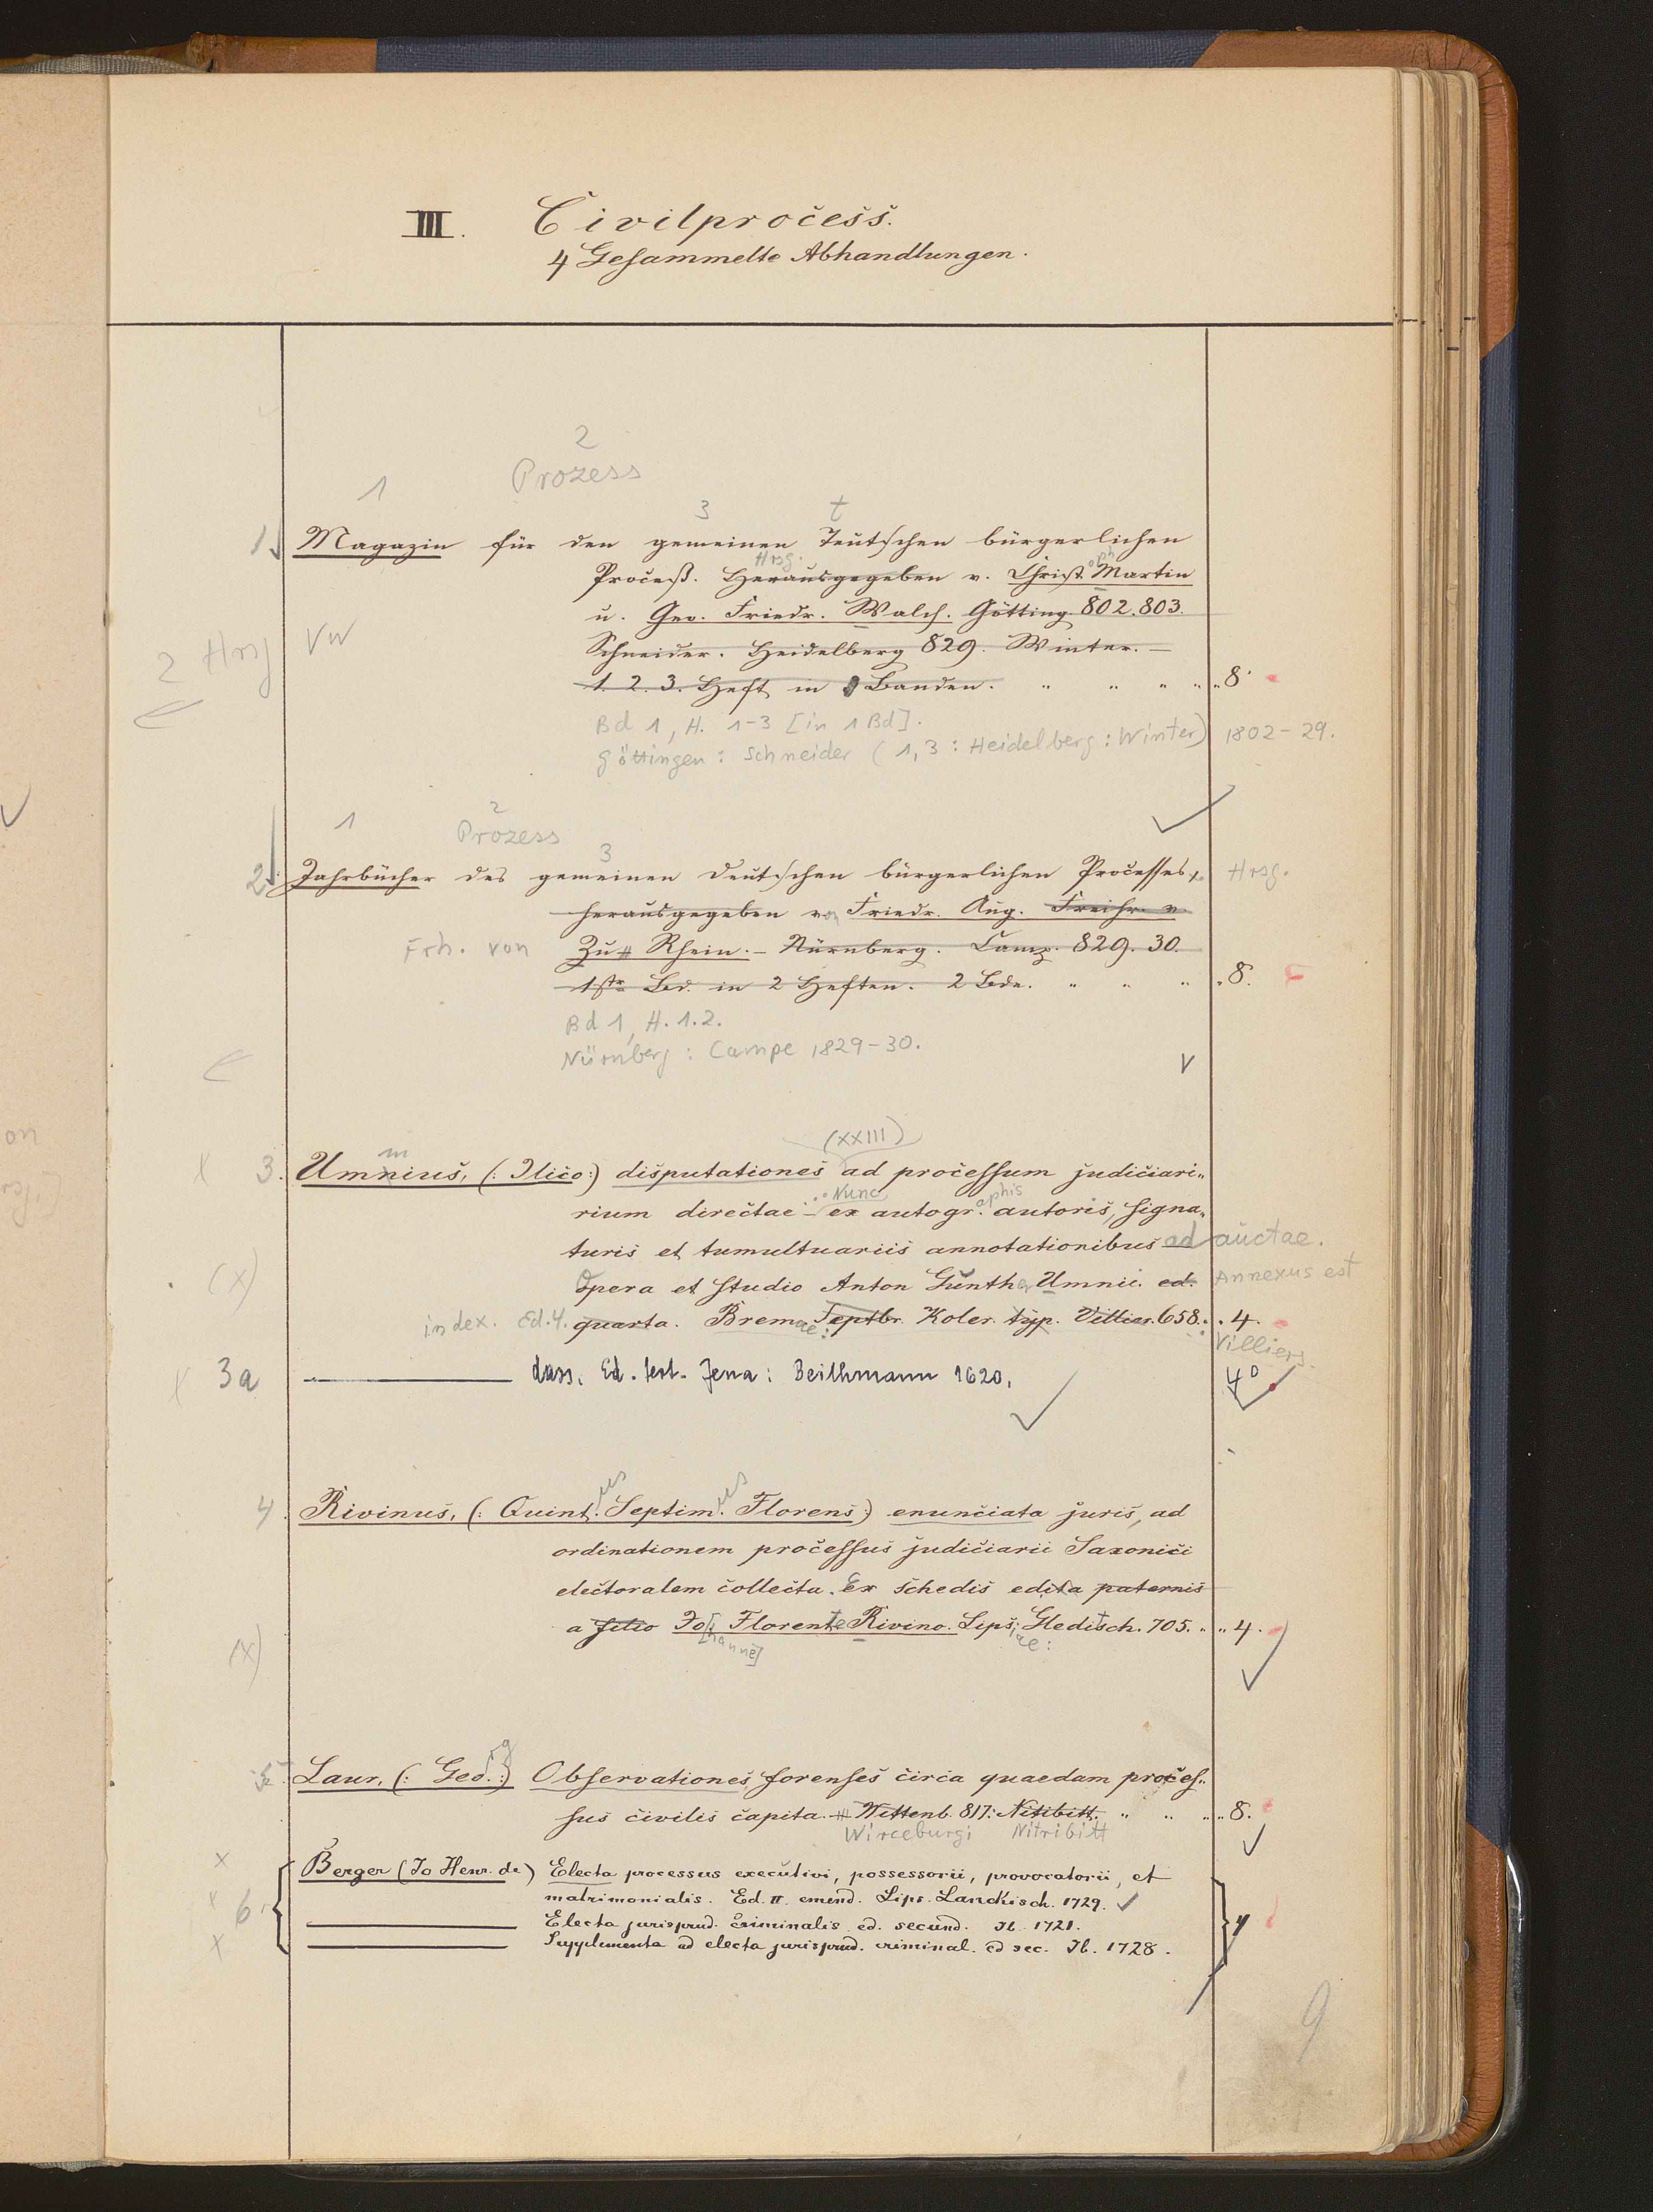 III. Civilprocess.
4 Gesammelte Abhandlungen.
2
1 Prozess
3 t
1. Magazin für den gemeinen Teutschen bürgerlichen
Hrsg. oph
Proceß. Herausgegeben v. Christ. Martin
u. Geo. Friedr. Walch. Götting. 802. 803.
2 Hrsg VW
Schneider. Heidelberg 829. Winter. —
1. 2. 3. Heft in Banden. " " " " 8.
Bd 1, H. 1-3 [in 1 Bd].
Göttingen: Schneider (1,3: Heidelberg: Winter) 1802-29.
1 2 Prozess
3
2. Jahrbücher des gemeinen deutschen bürgerlichen Processes, Hrsg.
herausgegeben von Friedr. Aug. Freihr. v.
Frh. von Zu Rhein. — Nürnberg. Camp. 829. 30.
1str Bd. in 2 Heften. 2 Bde. " " " 8.
Bd 1, H. 1.2.
Nürnberg: Campe 1829-30.
(XXIII)
m
X 3. Umnius, (: Ilico:) disputationes ad processum judiciari„
Nunc aphis
rium directae — ex autogr. autoris, signa„
turis et tumultuariis annotationibus adauctae.
(X) Opera et studio Anton Günth. Umnii. ed. Annexus est
index. Ed. 4. quarta. Bremae: Septbr. Koler. typ. Villier. 658. " 4.
Villiers.
X 3a ——— dass. Ed. tert. Jena: Beithmann 1620. 4°
us us
4. Rivinus, (: Quint. Septim. Florens:) enunciata juris, ad
ordinationem processus judiciarii Saxonici
electoralem collecta. Ex schedis edita paternis
a filio Jo. Florente Rivino. Lips. Gleditsch. 705. " " 4.
(X) [hanne] iae:
rg
5. Laur, (: Geo.:) Observationes forenses circa quaedam proces„
sus civilis capita. — Wittenb. 817. Nitibitt. " " " 8.
Wirceburgi Nitribitt
X Berger (Jo Henr. de) Electa processus executivi, possessorii, provocatorii, et
X 6. matrimonialis. Ed. II. emend. Lips. Lanckisch. 1729.
——— Electa jurisprud. criminalis ed. secund. Ib. 1721. 4
X ——— Supplementa ad electa jurisprud. criminal. ed sec. Ib. 1728.
9